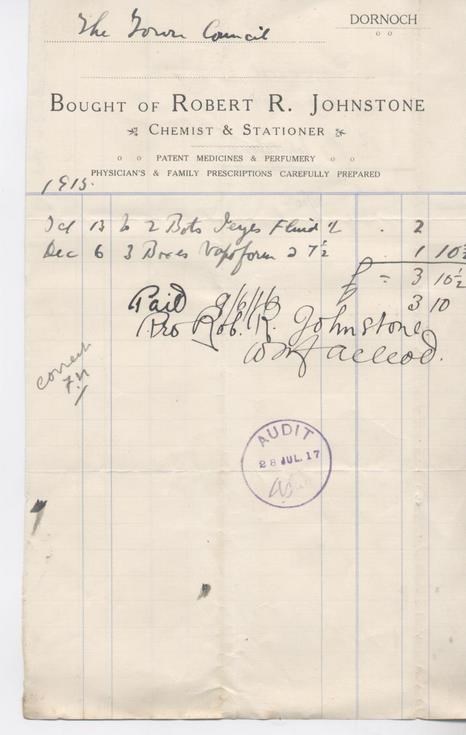 DORNOCH
The Town Council
BOUGHT OF ROBERT R. JOHNSTONE
CHEMIST & STATIONER
PATENT MEDICINES & PERFUMERY
PHYSICIAN'S & FAMILY PRESCRIPTIONS CAREFULLY PREPARED
1915.
Oct 13 To 2 Bots Jeyes Fluid 1/- . 2
Dec 6 3 Boxes Vapoform @ 7½ . 1 10½
£ = 3 10½
Paid 9/6/16 3 10
Pro Rob. R. Johnstone
W Macleod.
correct
AUDIT
28 JUL. 17